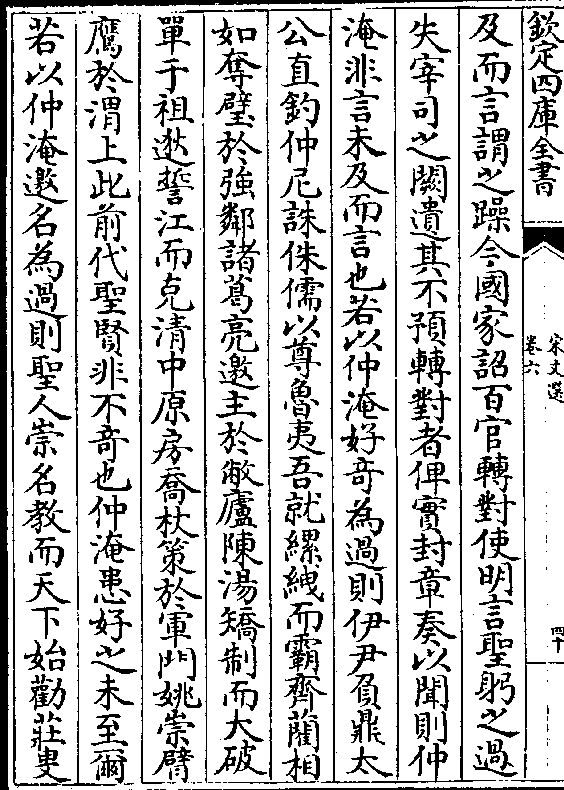 欽定四庫全書
宋文選
卷六
四十
及而言謂之躁今國家詔百官轉對使明言聖躬之過
失宰司之闕遺其不預轉對者俾實封章奏以聞則仲
淹非言未及而言也若以仲淹好竒為過則伊尹負鼎太
公直釣仲尼誅侏儒以尊魯夷吾就縲絏而霸齊藺相
如奪璧於強鄰諸葛亮邀主於敝廬陳湯矯制而大破
單于祖逖誓江而克清中原房喬杖策於軍門姚崇臂
鷹於渭上此前代聖賢非不竒也仲淹患好之未至爾
若以仲淹邀名為過則聖人崇名教而天下始勸莊叟